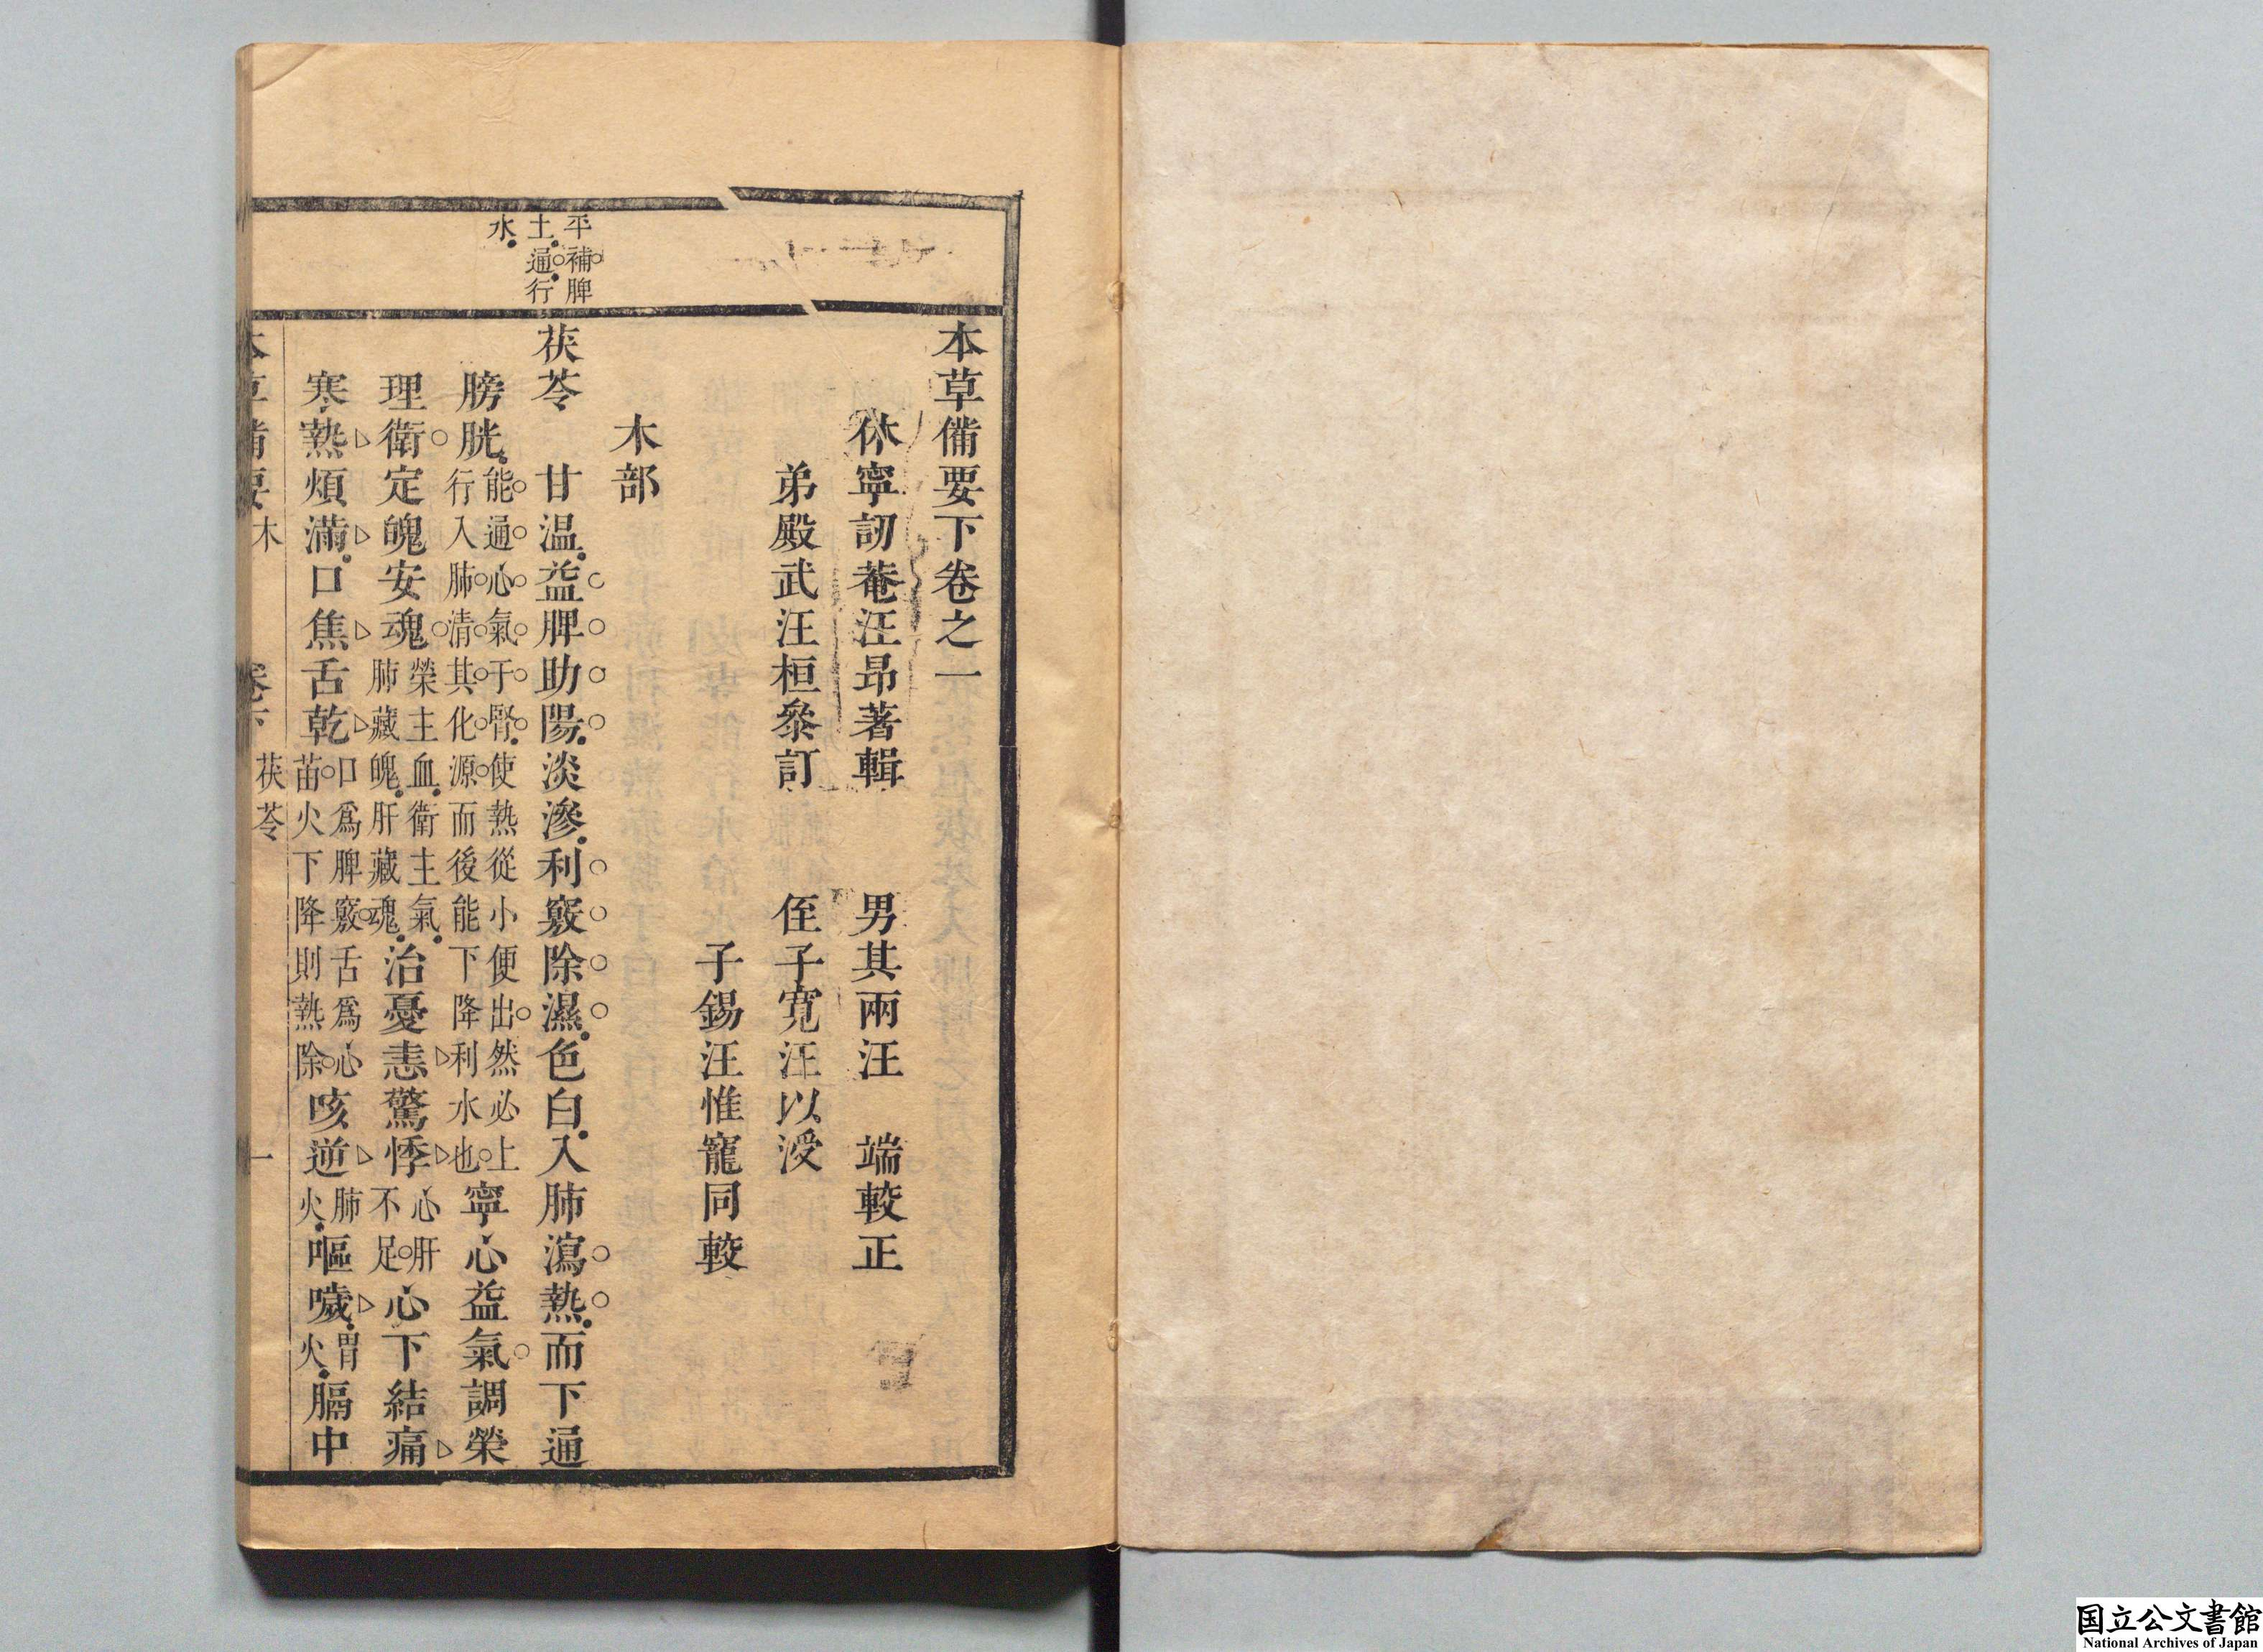 本草備要下卷之一
休寧訒菴汪昂著輯　男其兩汪　端較正
弟殿武汪桓叅訂　侄子寬汪以滋
子錫汪惟寵同較
木部
平補脾
土通行
水
茯苓　甘温益脾助陽淡滲利竅除濕色白入肺瀉熱而下通
膀胱能通心氣于腎使熱從小便出然必上行入肺清其化源而後能下降利水也寧心益氣調榮
理衛定魄安魂榮主血衛主氣肺藏魄肝藏魂治憂恚驚悸心肝不足心下結痛
寒熱煩滿口焦舌乾口爲脾竅舌爲心苗火下降則熱除咳逆肺火嘔噦胃火膈中
本草備要　木　卷下　茯苓　一
国立公文書館
National Archives of Japan